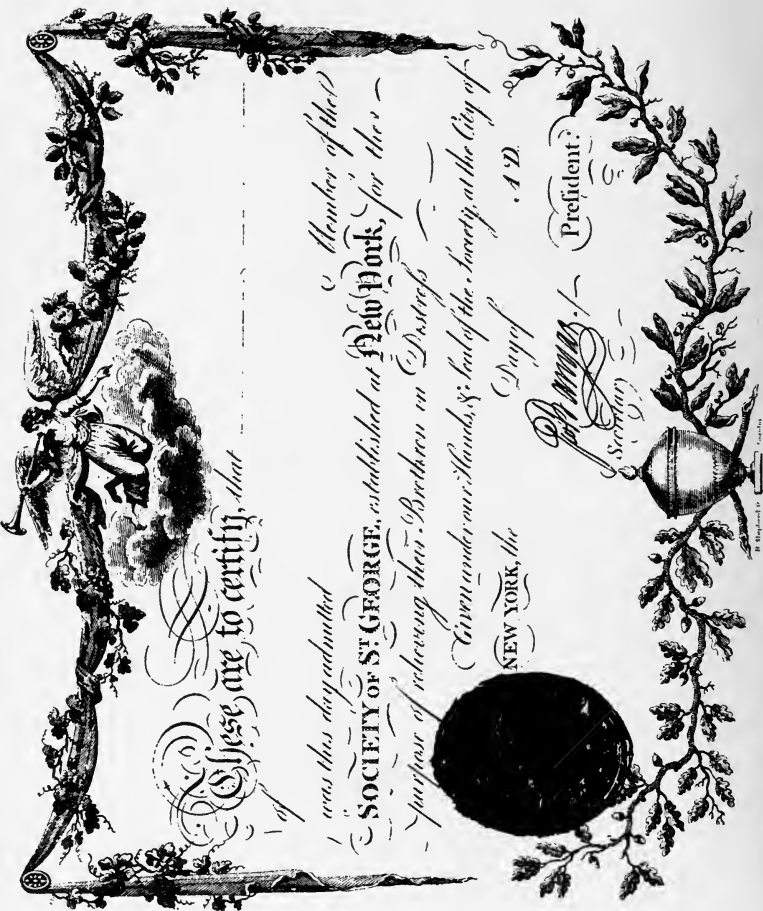 These are to certify, that
of
was this day admitted Member of the
SOCIETY OF ST. GEORGE, established at New York, for the
purpose of relieving their Brethren in Distress
Given under our Hands, & Seal of the Society, at the City of
NEW YORK, the Day of A D.
President.
Secretary